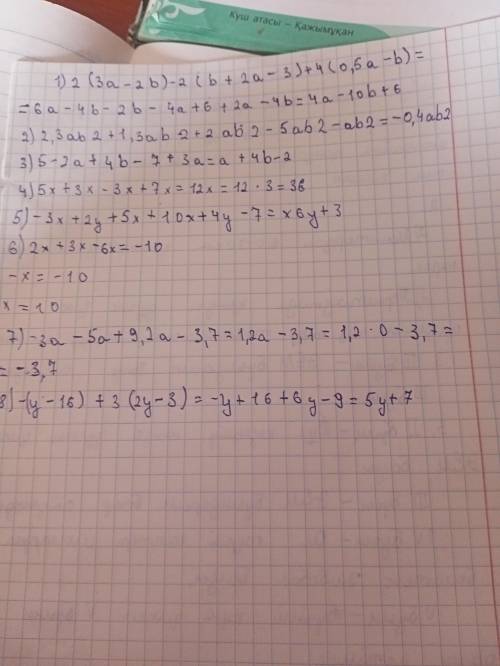 Күш атасы – Қажымұқан
1) 2 (3a - 2b) - 2 (b + 2a - 3) + 4 (0,5a - b) =
= 6a - 4b - 2b - 4a + 6 + 2a - 4b = 4a - 10b + 6
2) 2,3ab2 + 1,3ab2 + 2ab2 - 5ab2 - ab2 = -0,4ab2
3) 5 - 2a + 4b - 7 + 3a = a + 4b - 2
4) 5x + 3x - 3x + 7x = 12x = 12 · 3 = 36
5) -3x + 2y + 5x + 10x + 4y - 7 = x6y + 3
6) 2x + 3x - 6x = -10
-x = -10
x = 10
7) -3a - 5a + 9,2a - 3,7 = 1,2a - 3,7 = 1,2 · 0 - 3,7 =
= -3,7
8) -(y - 16) + 3 (2y - 3) = -y + 16 + 6y - 9 = 5y + 7